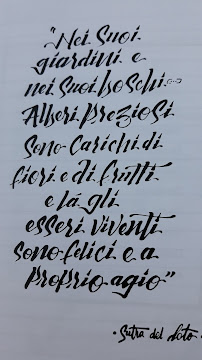 "Nei Suoi
giardini e
nei Suoi boschi...
Alberi Preziosi
Sono Carichi di
fiori e di frutti
e là gli
esseri viventi
sono felici e a
proprio agio"
• Sutra del loto •